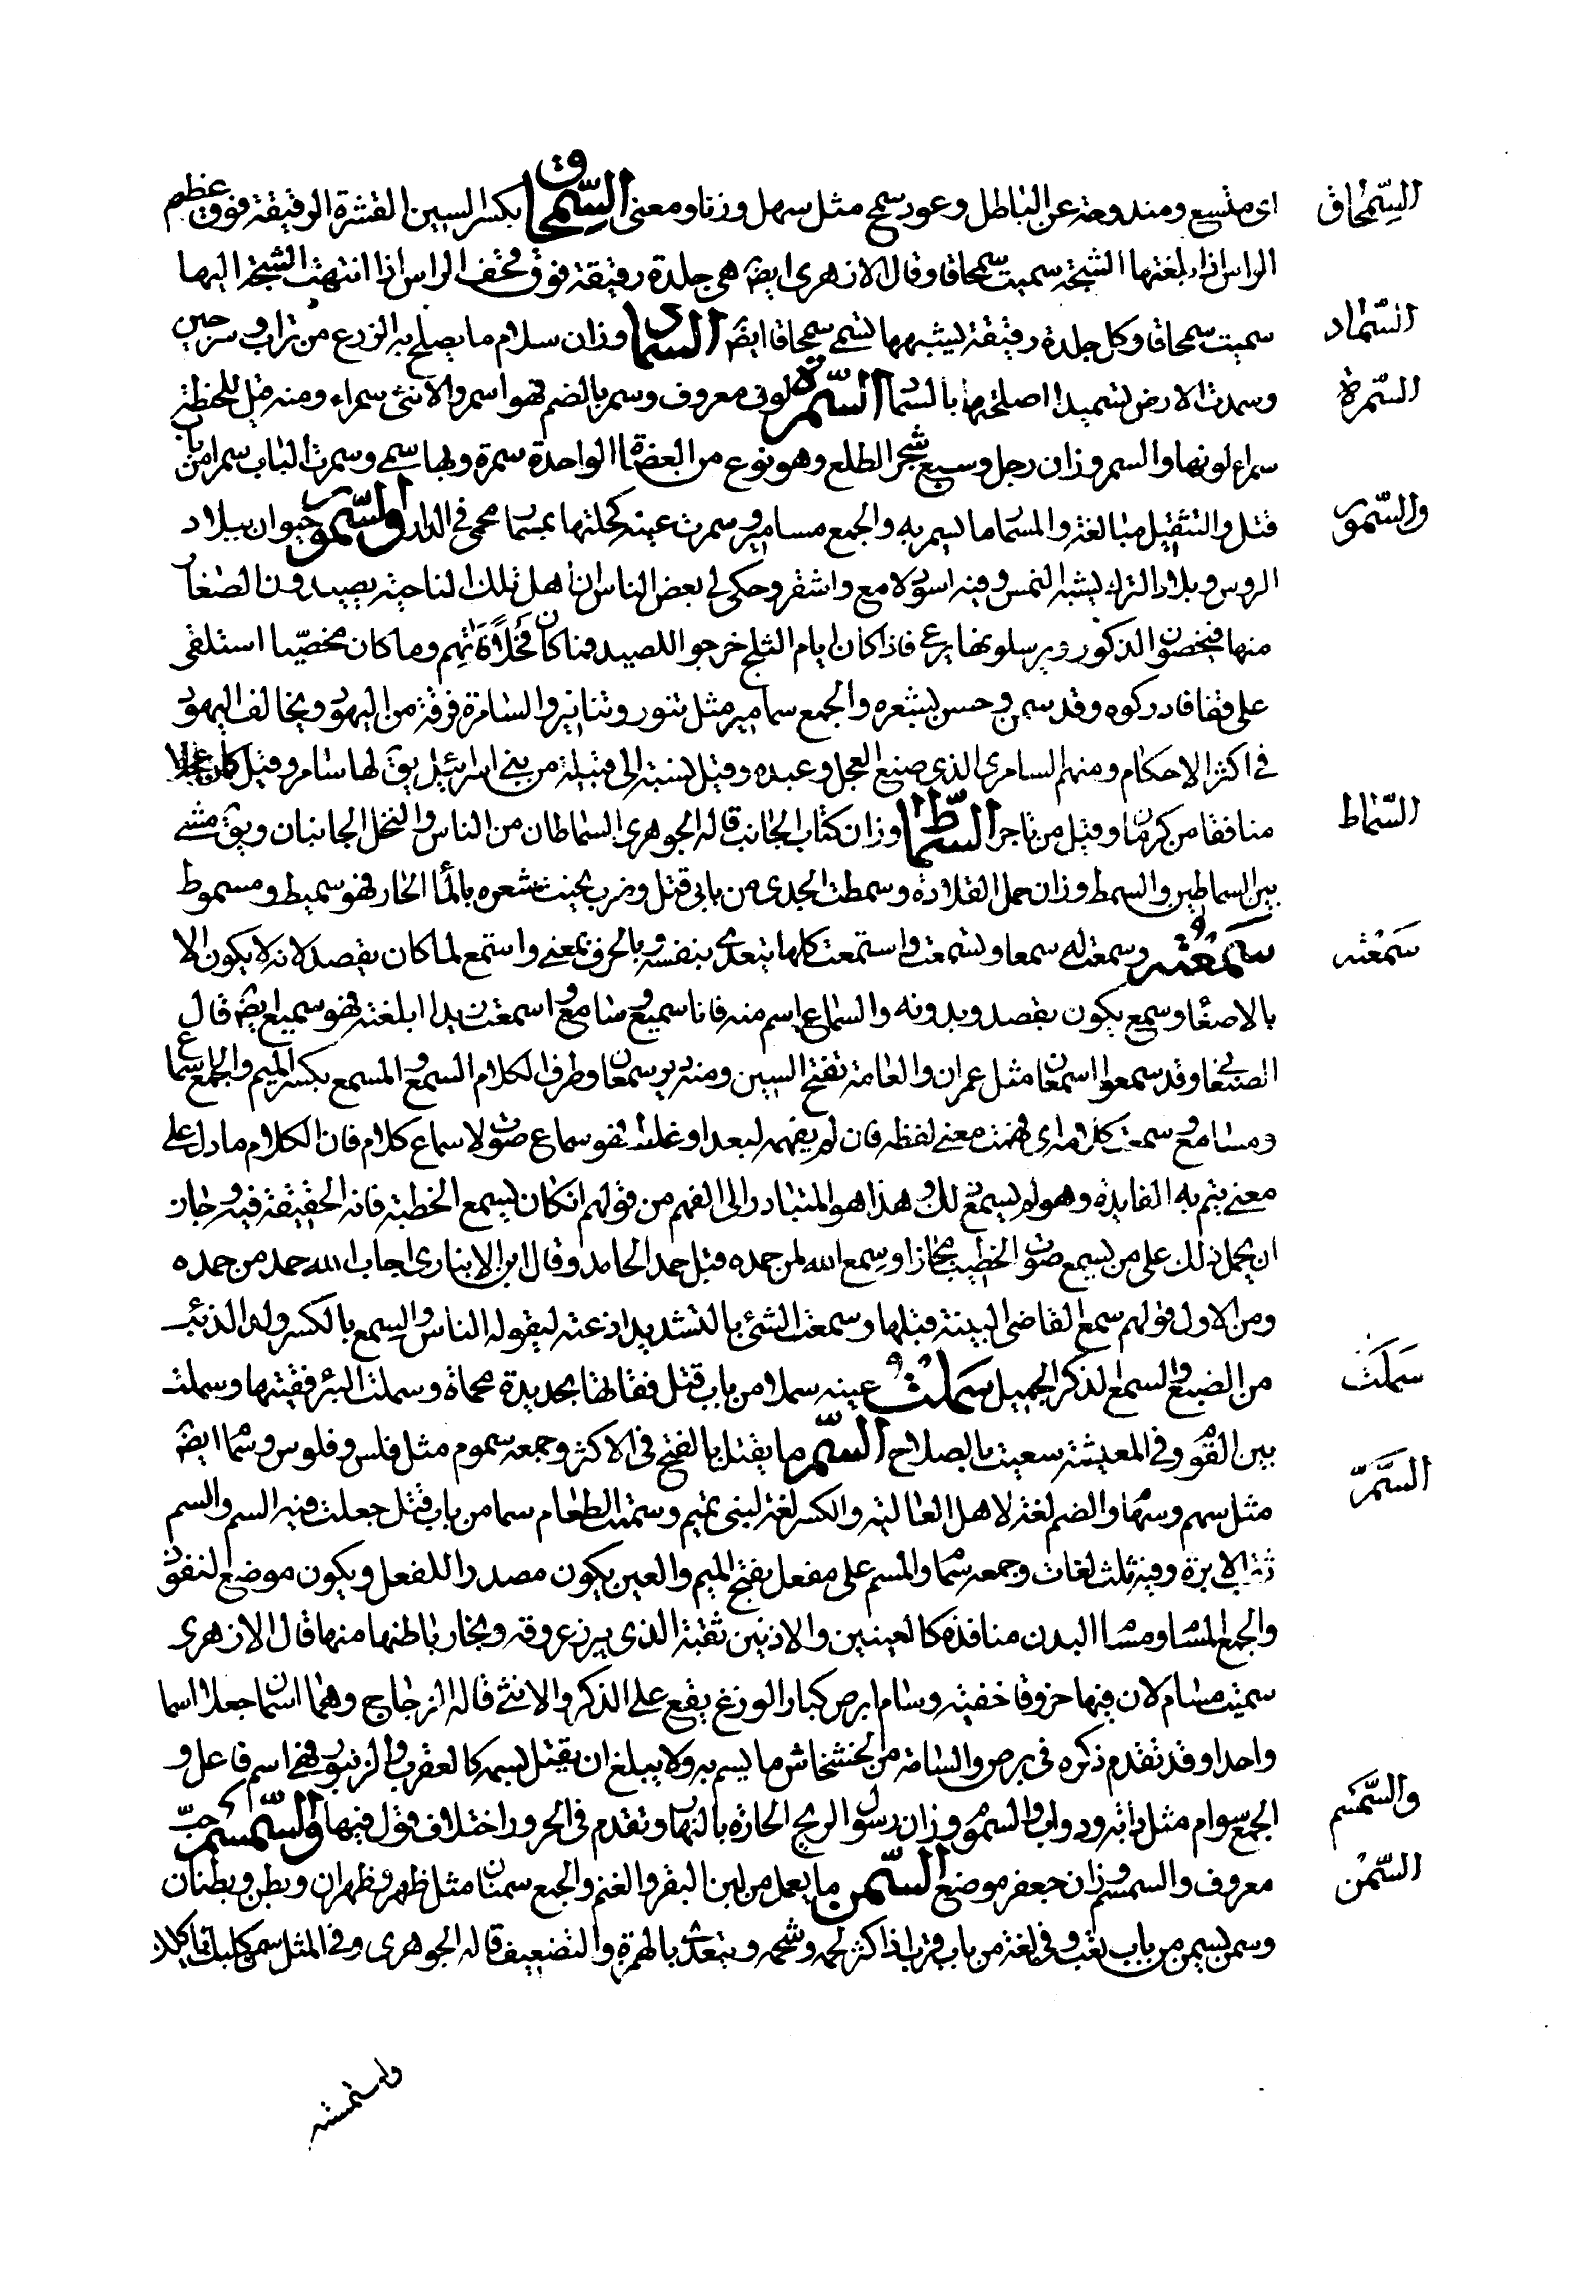 السِّمحاق
اى متسع ومندوحة عن الباطل وعود سمح مثل سهل وزنا ومعنى السِّمحاق بكسر السين القشرة الرقيقة فوق عظم
الراس اذا بلغتها الشجة سميت سمحاقا وقال الازهرى ايضً هى جلدة رقيقة فوق قحف الراس اذا انتهت الشجة اليها
السَّماد
سميت سمحاقا وكل جلدة رقيقة يشبهها تسمى سمحاقا ايضً السماد وزان سلام ما يصلح به الزرع من تراب وسرجين
السّمرة
وسمدت الارض تسميدا اصلحتها بالسماد السّمرة لون معروف وسمر بالضم فهو اسمر والانثى سمراء ومنه قيل للحنطة
سمراء لونها والسمر وزان رجل وسبع شجر الطلع وهو نوع من العضاة الواحدة سمرة وبها سمى وسمرت الباب سمرا من باب
والسّمّور
قتل والتثقيل مبالغة والمسمار ما يسمر به والجمع مسامير وسمرت عينه كحلتها بمسمار محمى فى النار والسّمور حيوان ببلاد
الروس وبلاد الترك يشبه النمس ومنه اسود لامع واشقر وحكى لى بعض الناس ان اهل تلك الناحية يصيدون الصغار
منها فيخصون الذكور ويرسلونها يرعى فاذا كان ايام الثلج خرجوا للصيد فما كان فحلا فاتهم وما كان مخصيّا استلقى
على قفاه فادركوه وقد سمن وحسن شعره والجمع سمامير مثل تنور وتنانير والسامرة فرقة من اليهود ويخالف اليهود
فى اكثر الاحكام ومنهم السامرى الذى صنع العجل وعبده وقيل نسبة الى قبيلة من بنى اسرائيل يقً لها سامر وقيل كان علجا
السّماط
منافقا من كرمان وقيل من باجر السّماط وزان كتاب الجانب قاله الجوهرى السماطان من الناس والنخل الجانبان ويقً مشى
بين السماطين والسمط وزان حمل القلادة وسمطت الجدى من بابى قتل وضرب نحيت شعره بالماء الحار فهو سميط ومسموط
سَمِعْته
سَمِعْته وسمعت له سمعا وتسمعت واستمعت كلها يتعدى بنفسه وبالحرف بمعنى واستمع لما كان بقصد لانه لا يكون الا
بالاصغاء وسمع يكون بقصد وبدونه والسماع اسم منه فانا سميع وسامع واسمعت زيدا ابلغته فهو سميع ايضً قال
الصغانى وقد سموا سمعان مثل عمران والعامة تفتح السين ومنه دير سمعان وطرف الكلام السمع والمسمع بكسر الميم والجمع اسماع
ومسامع وسمعت كلامه اى فهمت معنى لفظه فان لم يفهمه لبعد او غلط فهو سماع صوت لا سماع كلام فان الكلام ما دل على
معنى يتم به الفايدة وهو لم يسمع ذلك وهذا هو المتبادر الى الفهم من قولهم ان كان يسمع الخطبة فانه الحقيقة فيه وجاز
ان يحمل ذلك على من يسمع صوت الخطيب مجازا وسمع الله لمن حمده قبل حمد الحامد وقال ابن الانبارى اجاب الله حمد من حمده
ومن الاول قولهم سمع القاضى البينة قبلها وسمعت الشئ بالتشديد اذعته ليقوله الناس والسمع بالكسر ولد الذئب
سَمَلَتْ
من الضبع والسمع الذكر الجميل سَمَلْتُ عينه سملا من باب قتل فقاتها بحديدة محماة وسملت البئر نقيتها وسملت
السَّمّ
بين القوم وفى المعيشة سعيت بالصلاح السّمّ ما يقتل بالفتح فى الاكثر وجمعه سموم مثل فلس وفلوس وسمام ايضً
مثل سهم وسهام والضم لغة لاهل العالية والكسر لغة لبنى تميم وسممت الطعام سما من باب قتل جعلت فيه السم والسم
ثقب الابرة وفيه ثلث لغات وجمعه سمام والمسم على مفعل بفتح الميم والعين يكون مصدرا للفعل ويكون موضع النفوذ
والجمع المسام ومسام البدن منافذه كالعينين والاذنين ثقبة الذى يبرز عروقه وبخار باطنها منها قال الازهرى
سميت مسام لان فيها خروقا خفية وسام ابرص كبار الوزغ يقع على الذكر والانثى قاله الزجاج وهما اسمان جعلا اسما
واحدا وقد تقدم ذكره فى برص والسامة من الخشخاش ما يسم به ولا يبلغ ان يقتل بسمه كالعقرب والزنبور فهى اسم فاعل و
والسِّمسِم
الجمع سوام مثل دابة ودواب والسموم وزان رسول الريح الحارة بالنهار وتقدم فى الحرور اختلاف قول فيها والسّمسم حبّ
السَّمْن
معروف والسمسم وزان جعفر موضع السّمن ما يعمل من لبن البقر والغنم والجمع سمنان مثل ظهر وظهران وبطن وبطنان
وسمن يسمن من باب تعب وفى لغة من باب قرب اذا كثر لحمه وشحمه ويتعدى بالهمزة والتضعيف قاله الجوهرى وفى المثل سمن كلبك ياكلك